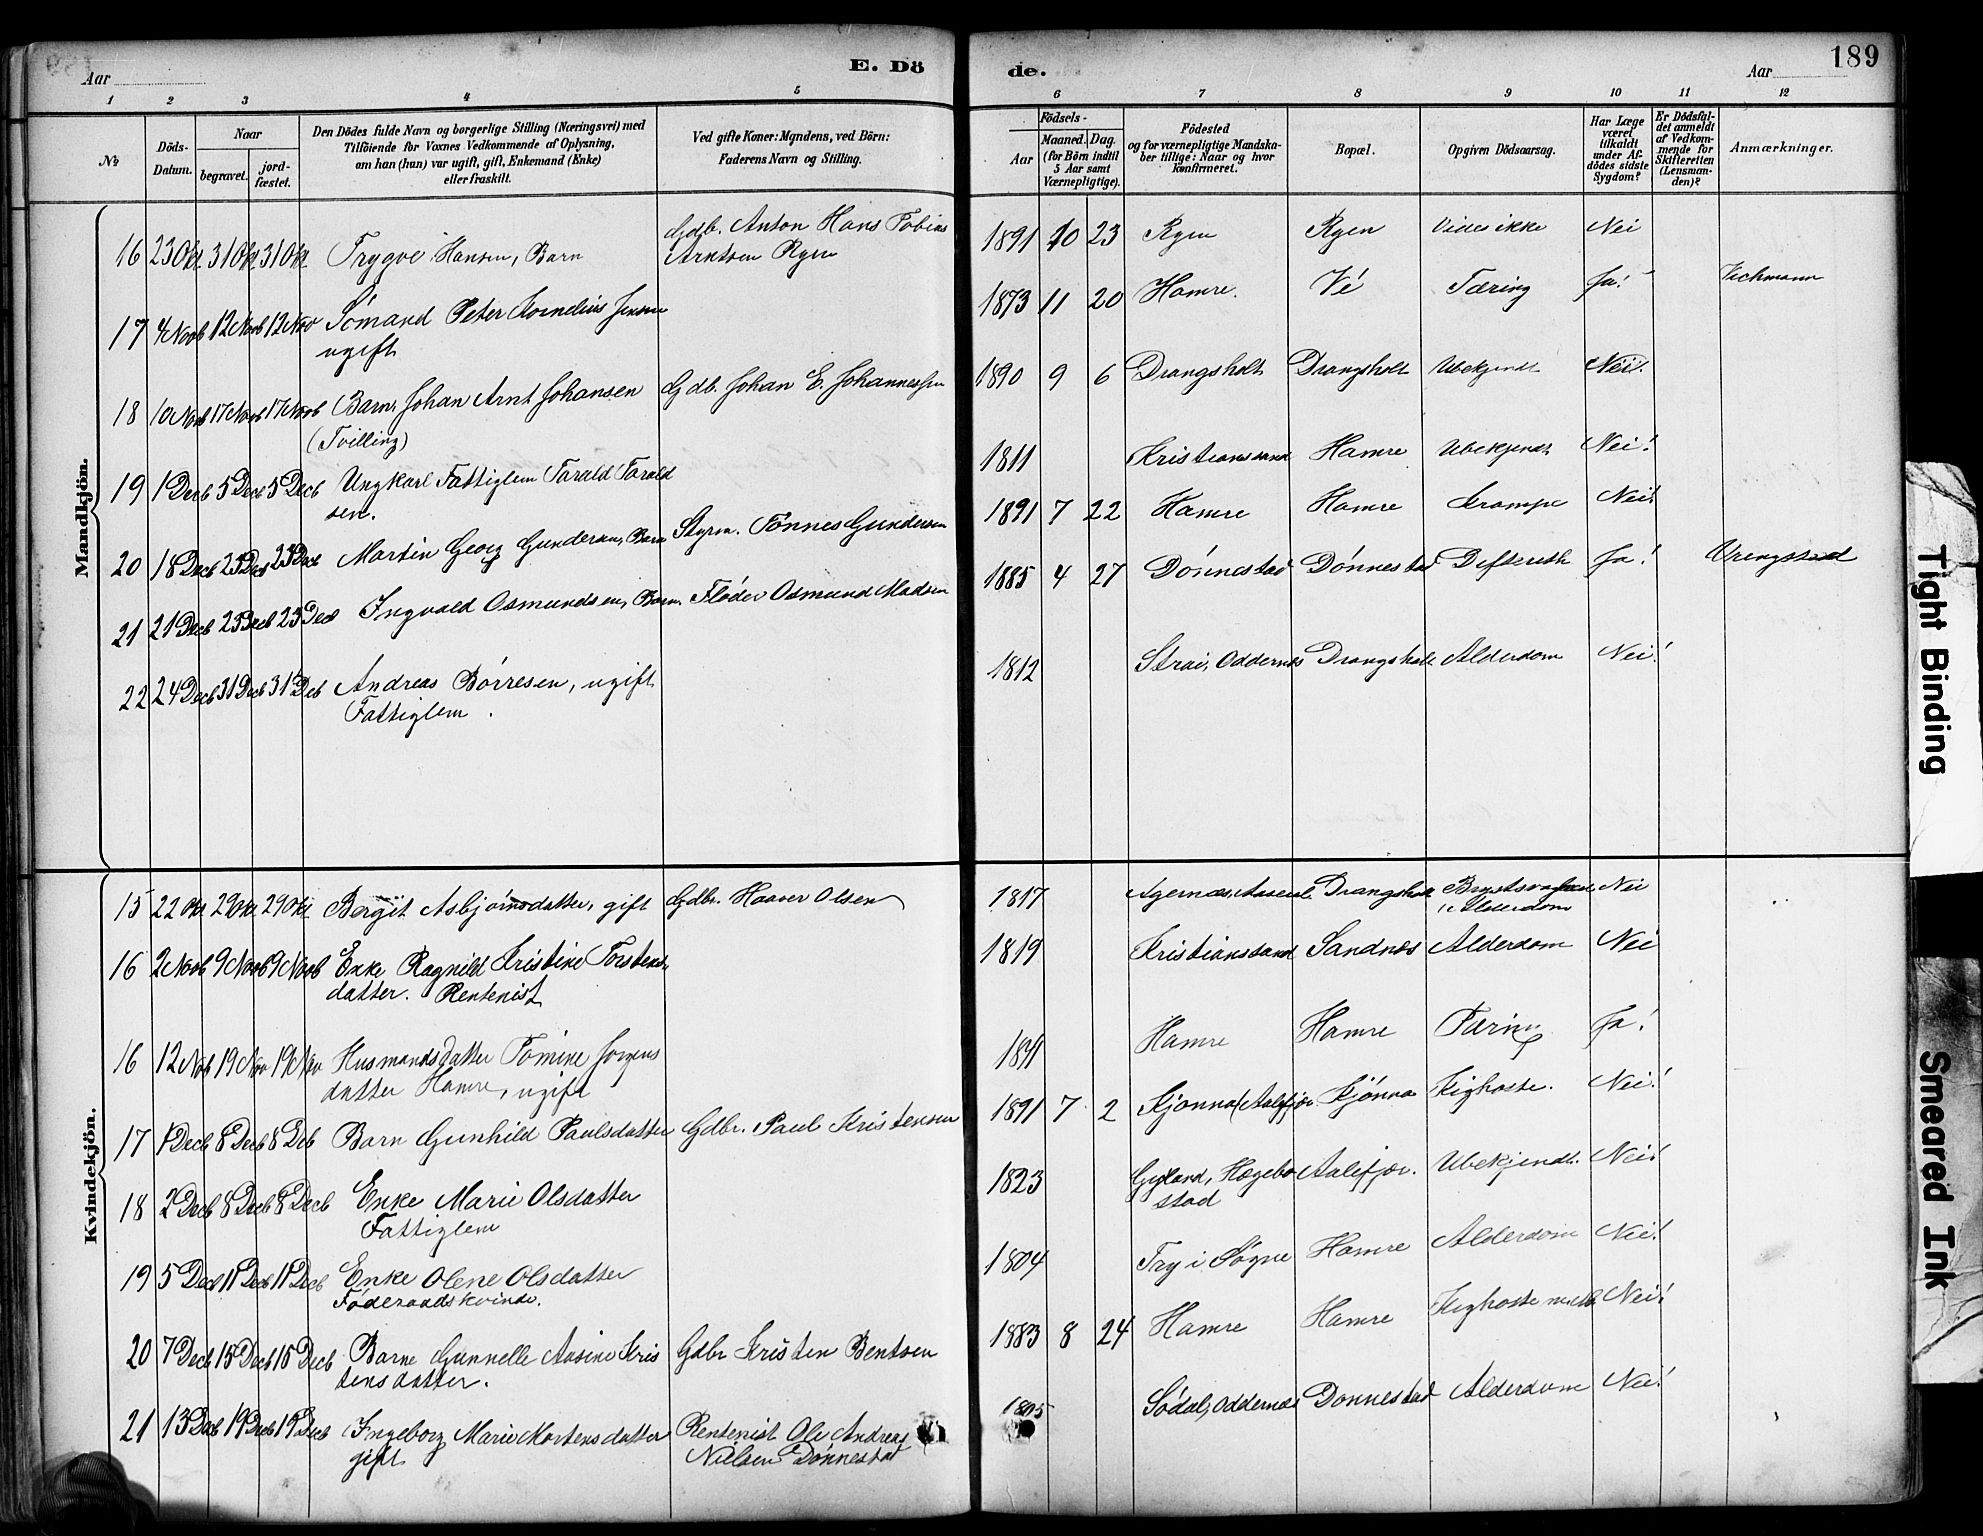 189
Aar E. Dö de. Aar
1 2 3 4 5 6 7 8 9 10 11 12
No
Döds-Datum.
Naar
begravet.
jord-fæstet.
Den Dödes fulde Navn og borgerlige Stilling (Næringsvei) med
Tilföiende for Voxnes Vedkommende af Oplysning,
om han (hun) var ugift, gift, Enkemand (Enke)
eller fraskilt.
Ved gifte Koner: Mandens, ved Börn:
Faderens Navn og Stilling.
Födsels-
Aar
Maaned. Dag.
(for Börn indtil
5 Aar samt
Værnepligtige).
Födested
og for værnepligtige Mandska-
ber tillige: Naar og hvor
konfirmeret.
Bopæl.
Opgiven Dödsaarsag.
Har Læge
været
tilkaldt
under Af-
dödes sidste
Sygdom?
Er Dödsfal-
det anmeldt
af Vedkom-
mende for
Skifteretten
(Lensman-
den)?
Anmærkninger.
Mandkjön.
16 23 Okt 31 Okt 31 Okt Trygve Hansen, Barn Gdb. Anton Hans Tobias 1891 10 23 Ryen Ryen Vides ikke Nei
Arntsen Ryen
17 4 Novb 12 Novb 12 Nov Sömand Peter Kornelius Jensen 1873 11 20 Hamre. Vé Tæring Ja! Vichmann
ugift
18 10 Novb 17 Novb 17 Novb Barn, Johan Arnt Johansen Gdb. Johan E. Johannessen 1890 9 6 Drangsholt Drangsholt Ubekjendt Nei.
(Tvilling)
19 1 Decb 5 Decb 5 Decb Ungkarl Fattiglem Tarald Tarald 1811 Kristianssand Hamre Ubekjendt Nei!
sen.
20 18 Decb 23 Dec 23 Decb Martin Georg Gundersen, Barn Styrm. Tönnes Gundersen 1891 7 22 Hamre Hamre Krampe Nei!
21 21 Decb 23 Decb 23 Dec Ingvald Osmundsen, Barn. Fløder Osmund Madsen 1885 4 27 Dönnestad Dönnestad Difterith Ja! Vrengstad
22 24 Decb 31 Decb 31 Deb Andreas Börresen, ugift 1812 Strai, Oddernes Drangsholt Alderdom Nei!
Fattiglem.
Kvindekjön.
15 22 Okt 29 Okt 29 Okt Bergit Asbjörnsdatter, gift Gdbr. Haaver Olsen 1817 Agernæs, Aaseral. Drangsholt Brystsvaghed Nei
Alderdom
16 2 Novb 9 Novb 9 Novb Enke Ragnild Kristine Torstens- 1819 Kristianssand Sandnæs Alderdom Nei
datter. Rentenist
16 12 Nob 19 Nov 19 Nov Husmandsdatter Tomine Jorgens Hamre Hamre Tæring Ja!
datter Hamre, ugift
17 1 Decb 8 Decb 8 Deb Barn Gunhild Paulsdatter Gdbr. Paul Kristensen 1891 7 2 Kjönna Kighoste. Nei!
18 2 Decb 8 Decb 8 Decb Enke Marie Olsdatter 1823 Gyland, Hægebo Aalefjær. Ubekjendt. Nei!
Fattiglem stad
19 5 Decb 11 Decb 11 Decb Enke Olene Olsdatter 1804 Try i Søgne Hamre Alderdom Nei!
Föderaadskvinde.
20 7 Decb 15 Decb 15 Decb Barne Gunnelle Aasine Kris Gdbr Kristen Bentsen 1883 8 24 Hamre Hamre Kighoste Nei!
tensdatter.
21 13 Decb 19 Decb 19 Decb Ingeborg Marie Mortensdatter Rentenist Ole Andreas 1805 Södal, Oddernes Donnestad Alderdom Nei!
gift Nielsen Dönnestad
Tight Binding
Smeared Ink